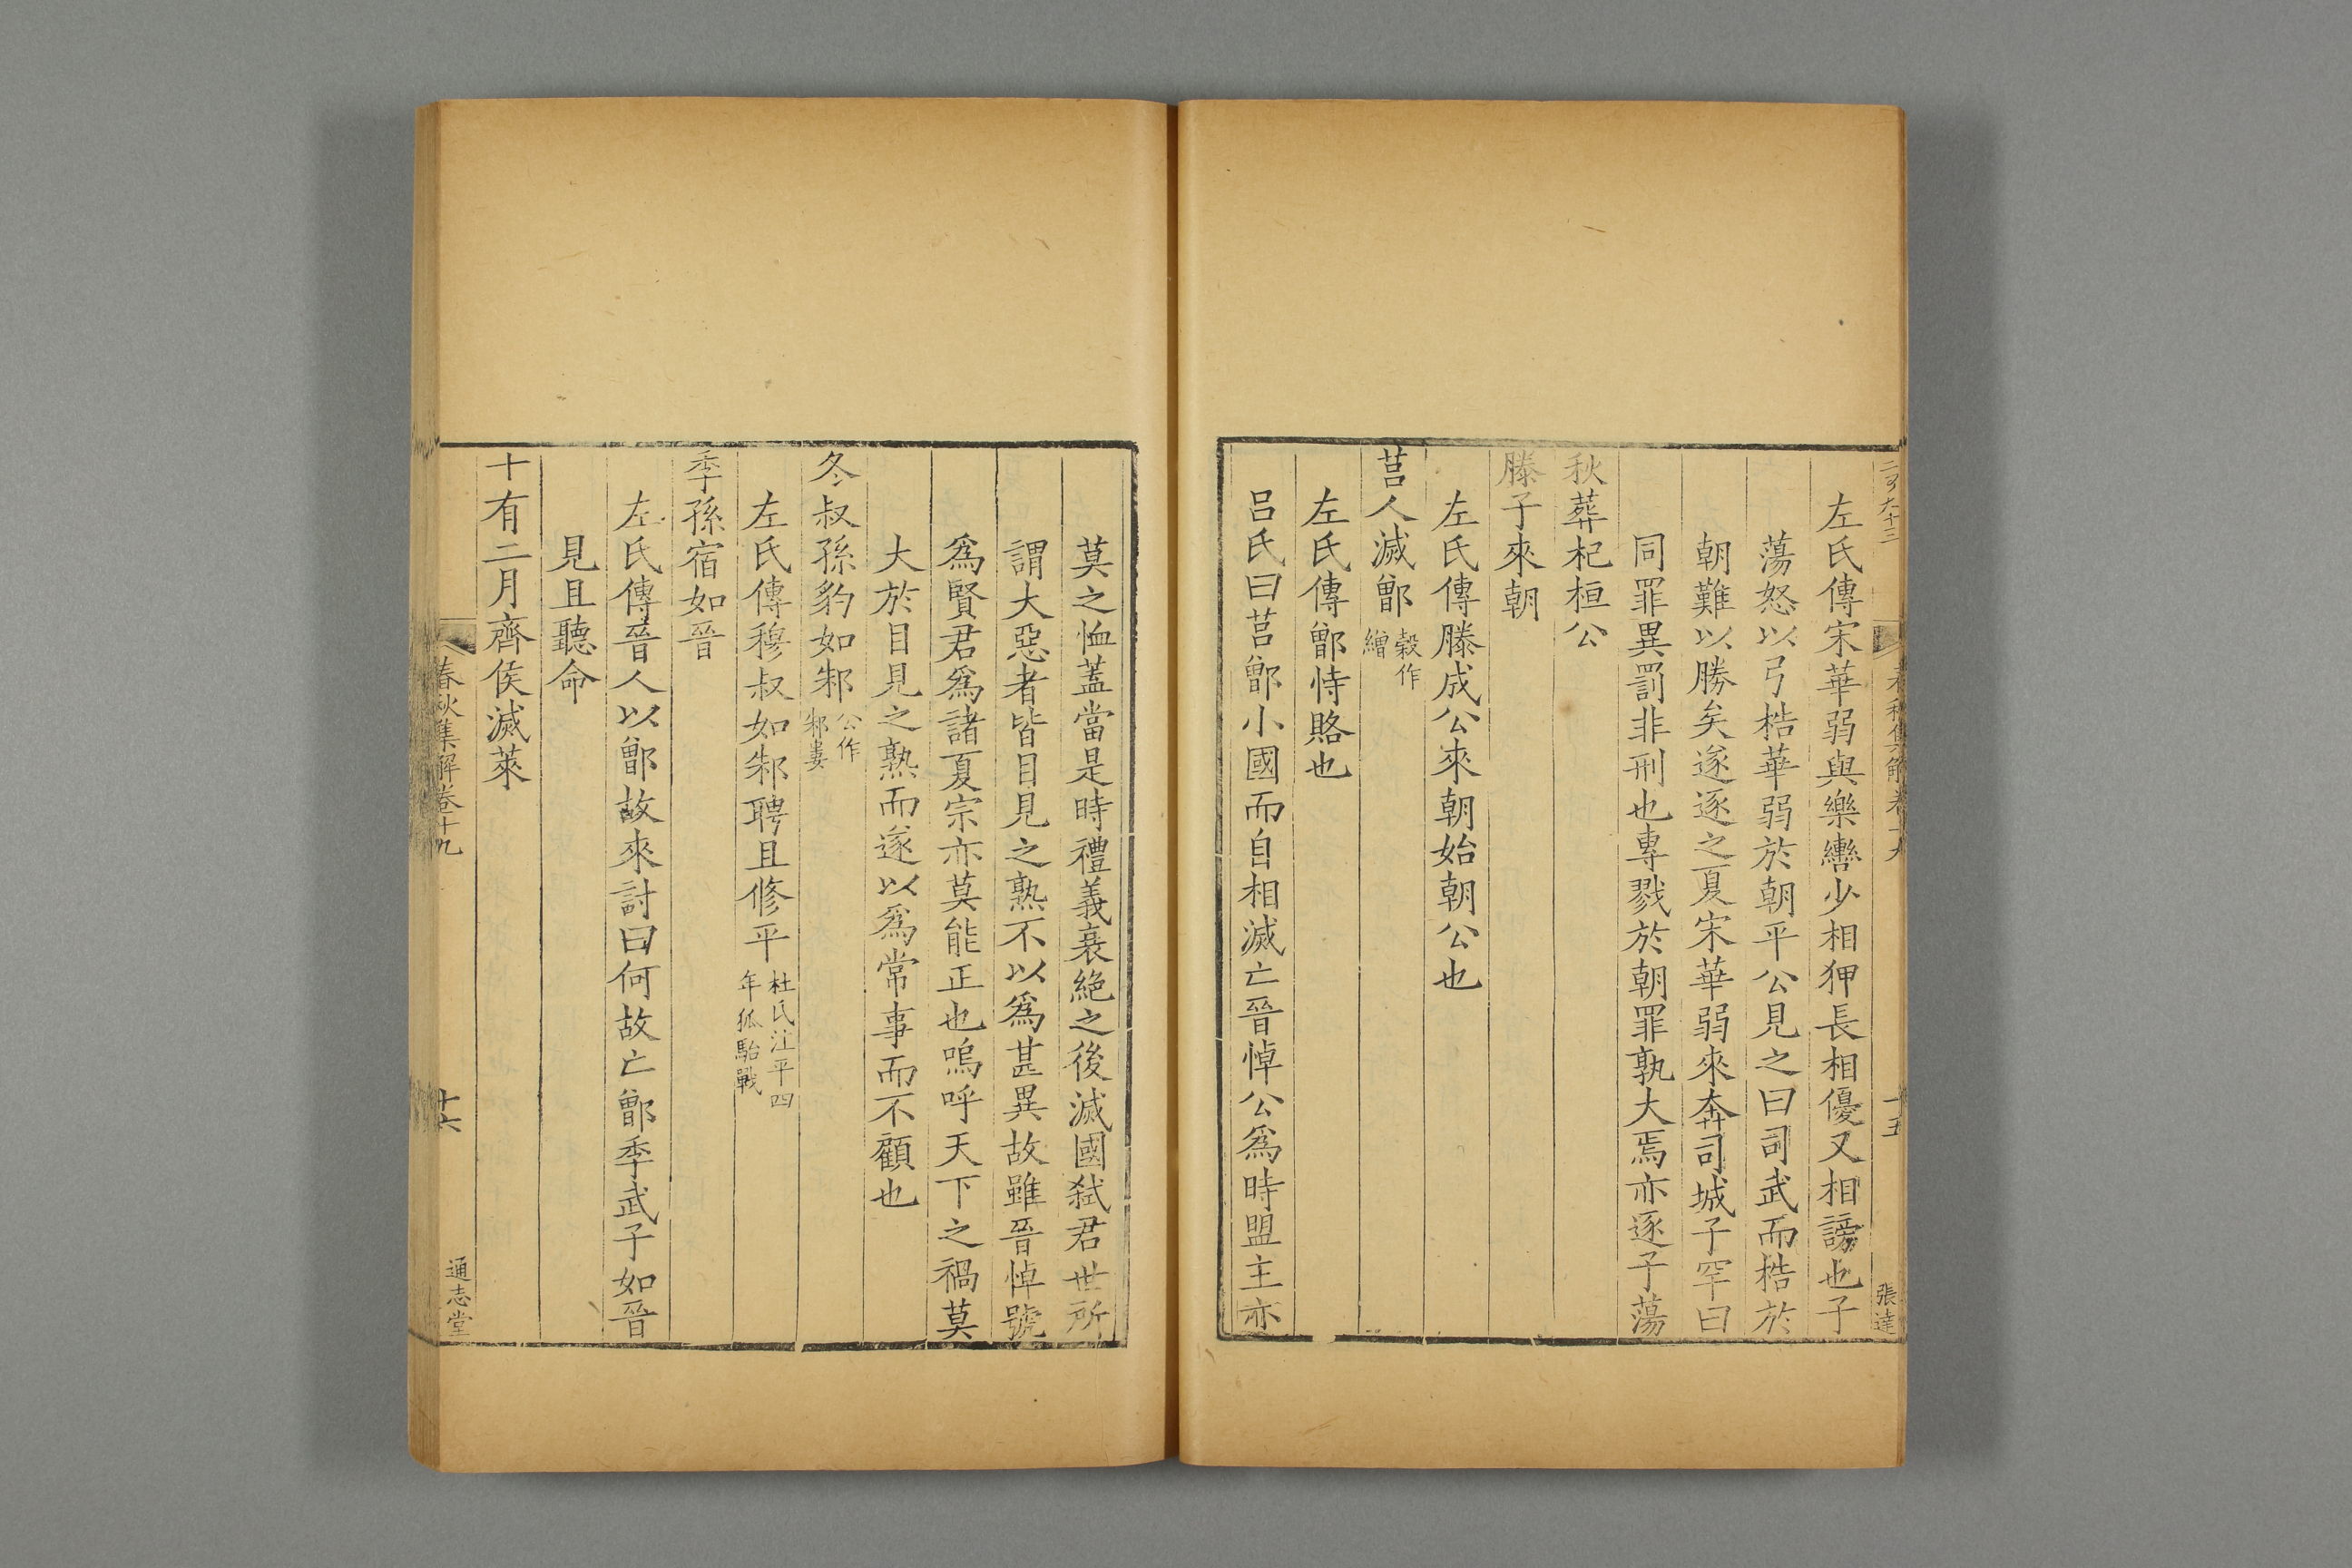 春秋集解卷十九
十五
張達
左氏傳宋華弱與樂轡少相狎長相優又相謗也子
蕩怒以弓梏華弱於朝平公見之曰司武而梏於
朝難以勝矣遂逐之夏宋華弱來奔司城子罕曰
同罪異罰非刑也專戮於朝罪孰大焉亦逐子蕩
秋葬杞桓公
滕子來朝
左氏傳滕成公來朝始朝公也
莒人滅鄫榖作繒
左氏傳鄫恃賂也
呂氏曰莒鄫小國而自相滅亡晉悼公爲時盟主亦
莫之恤蓋當是時禮義衰絶之後滅國弒君世所
謂大惡者皆目見之熟不以爲甚異故雖晉悼號
爲賢君爲諸夏宗亦莫能正也嗚呼天下之禍莫
大於目見之熟而遂以爲常事而不顧也
冬叔孫豹如邾公作邾婁
左氏傳穆叔如邾聘且修平杜氏注平四年狐駘戰
季孫宿如晉
左氏傳晉人以鄫故來討曰何故亡鄫季武子如晉
見且聽命
十有二月齊侯滅萊
春秋集解卷十九
十六
通志堂